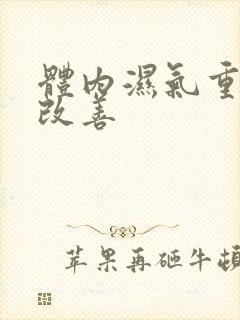 體內濕氣重
改善
苹果再砸牛頓